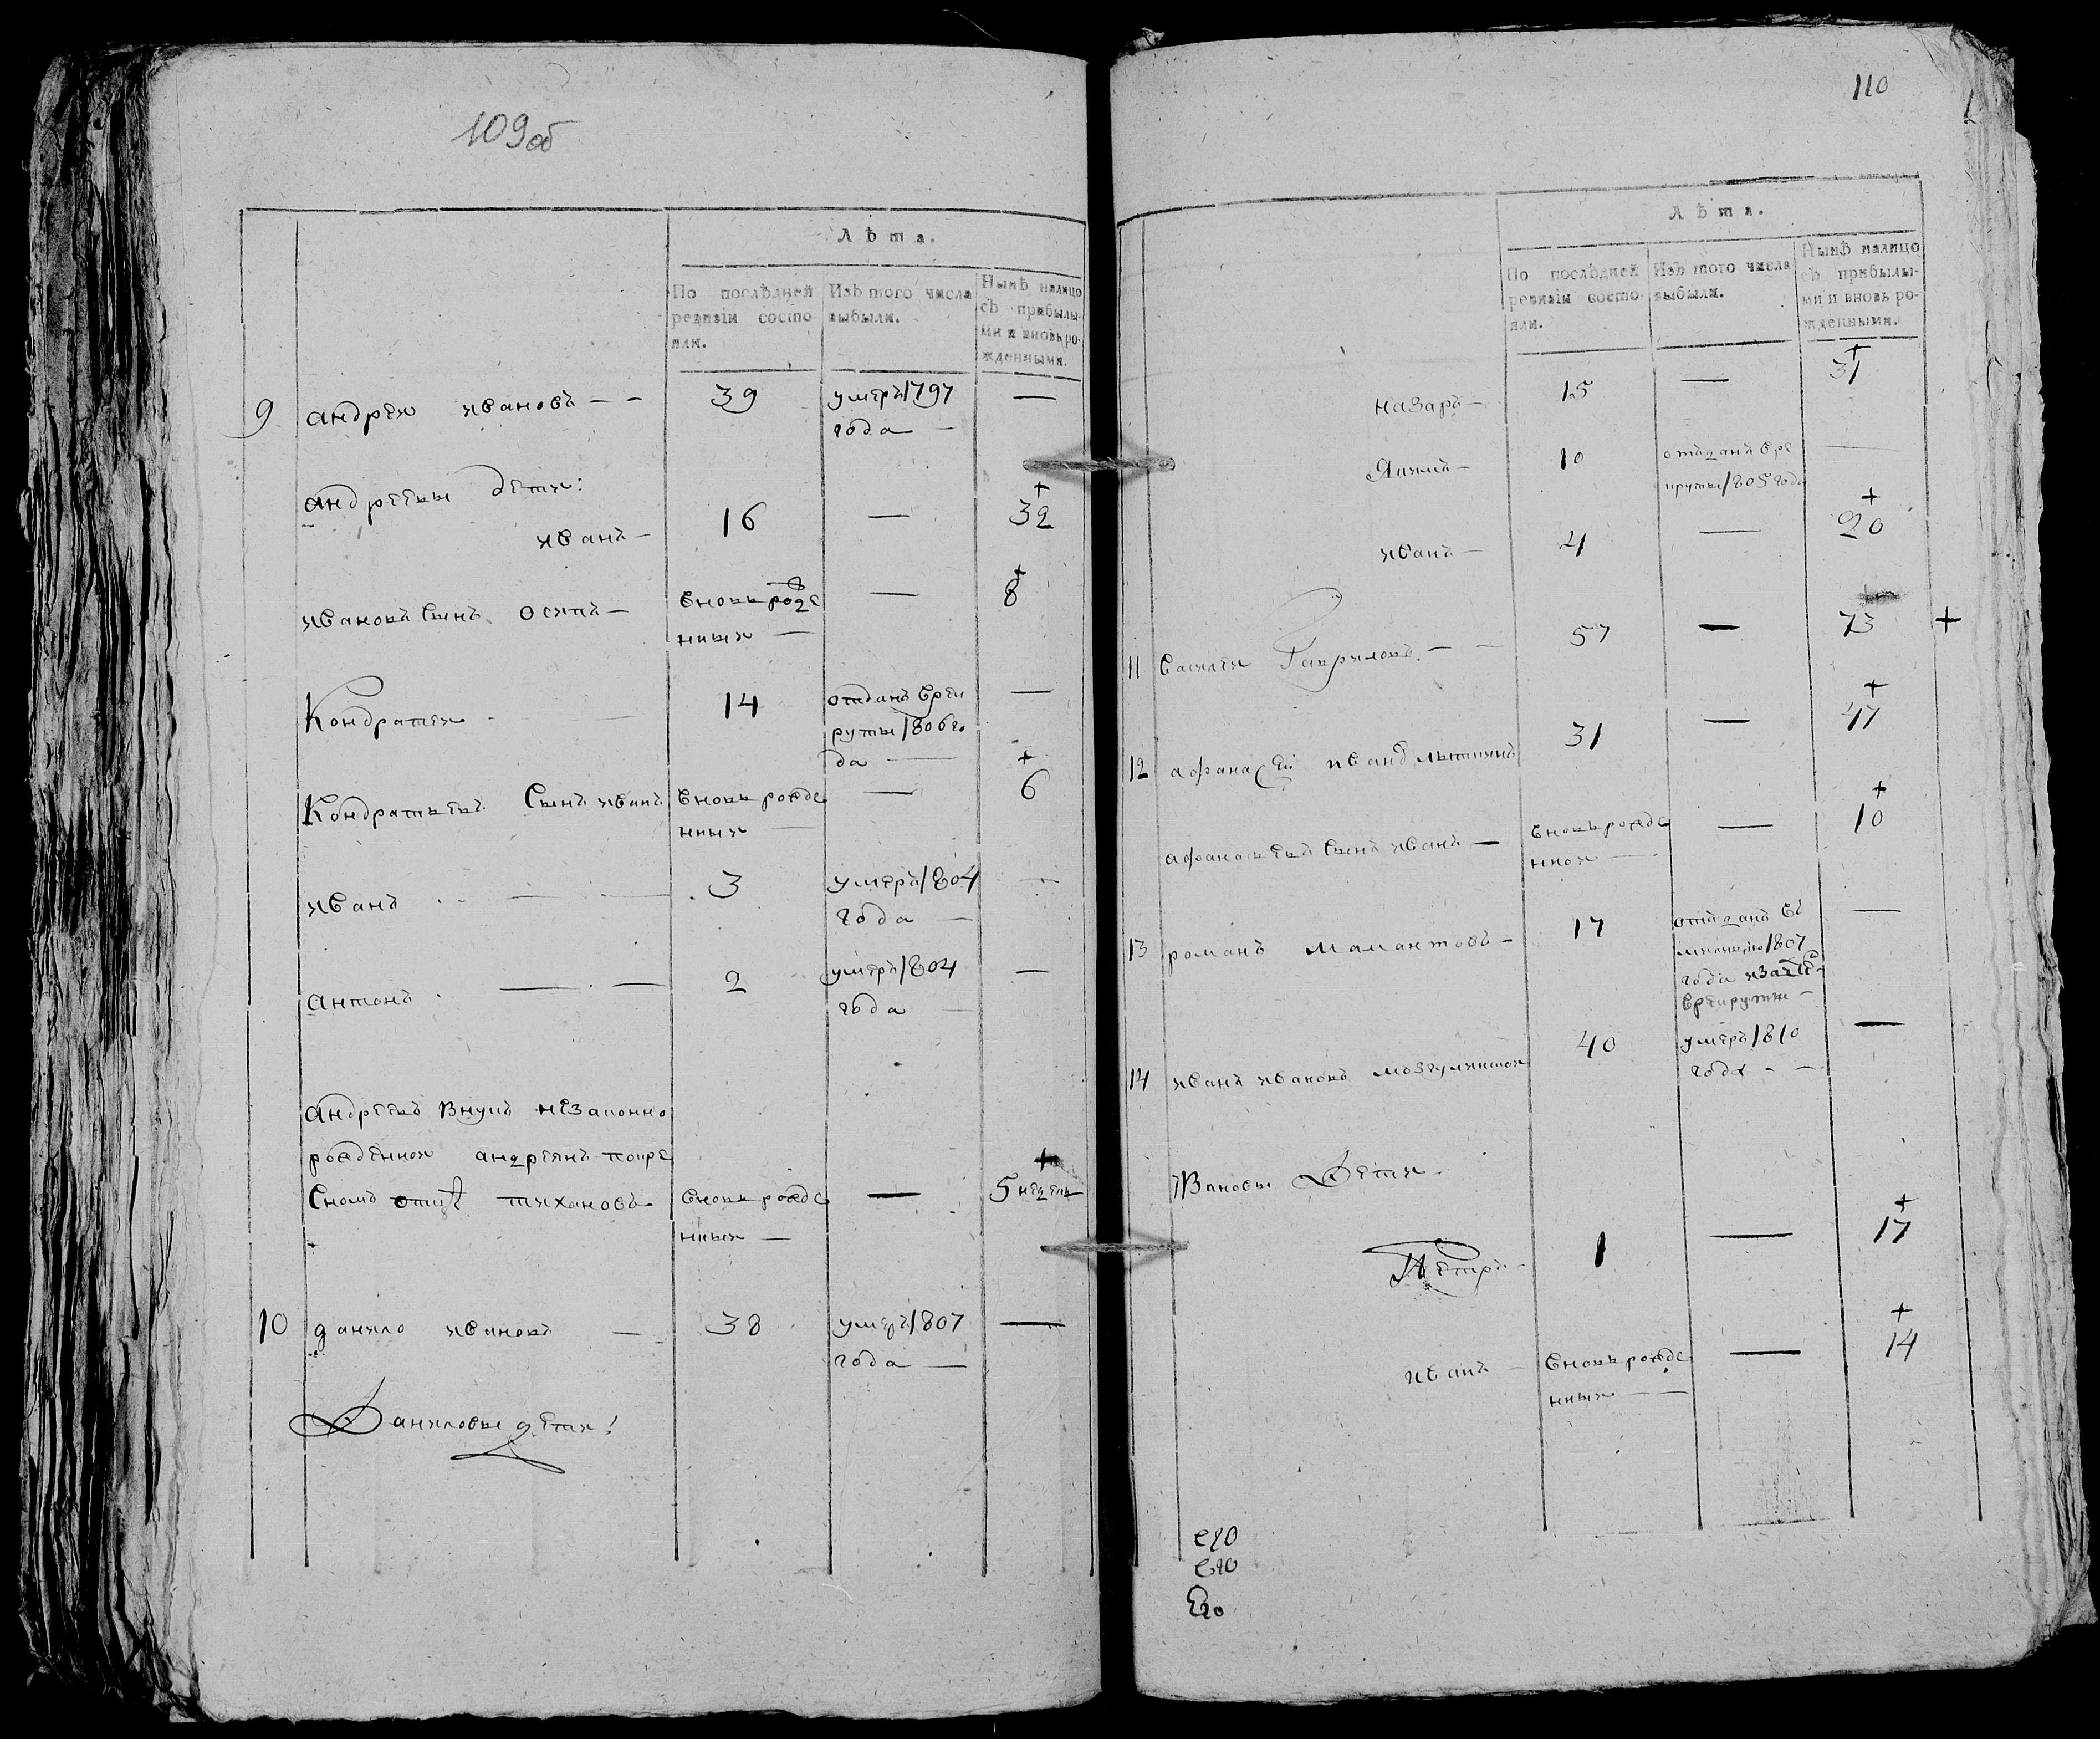 109об
Лѣта.
По послѣдней ревизіи состояли.
Изъ того числа выбыли.
Нынѣ налицо съ прибылыми и вновь рожденными.
9 андреи ивановъ — — 39 умеръ 1797 —
года —
+
андреевы дети:
иванъ — 16 — 32
+
ивановъ сынъ осипъ — вновь рожде — 8
нныи —
Кондратеи — 14 отданъ врек —
руты 1806 го
да — +
Кондратьевъ сынъ иванъ вновь рожде — 6
нныи —
иванъ — — 3 умеръ 1804 —
года —
антонъ — — 2 умеръ 1804 —
года —
андреевъ внукъ незаконно
рожденнои андреянъ покре +
сному отцѣ тихановъ вновь рожде — 5 недель
нныи —
10 данило ивановъ — 38 умеръ 1807 —
года —
Даниловы дети:
110
Лѣта.
По послѣдней ревизіи состояли.
Изъ того числа выбыли.
Нынѣ налицо съ прибылыми и вновь рожденными.
+
назаръ — 15 — 31
Якимъ — 10 отданъ вре —
круты 1805 года
+
иванъ — 4 — 20
+
11 василеи Гавриловъ — — 57 — 73 +
+
12 афанасеи 31 — 47
+
афанасьевъ сынъ иванъ — вновь рожде — 10
нной —
13 романъ мамантовъ — 17 отданъ въ —
милицию 1807
года
врекруты —
14 иванъ ивановъ 40 умеръ 1810 —
года — —
Ивановы Дети
+
Петръ — 1 — 17
+
иванъ — вновь рожде — 14
нныи — —
его
его
Его